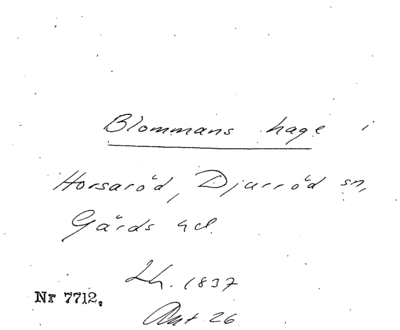 Blommans hage i
Horsaröd, Djurröd sn,
Gärds hd.
Lh. 1837
Nr 7712.
Akt 26